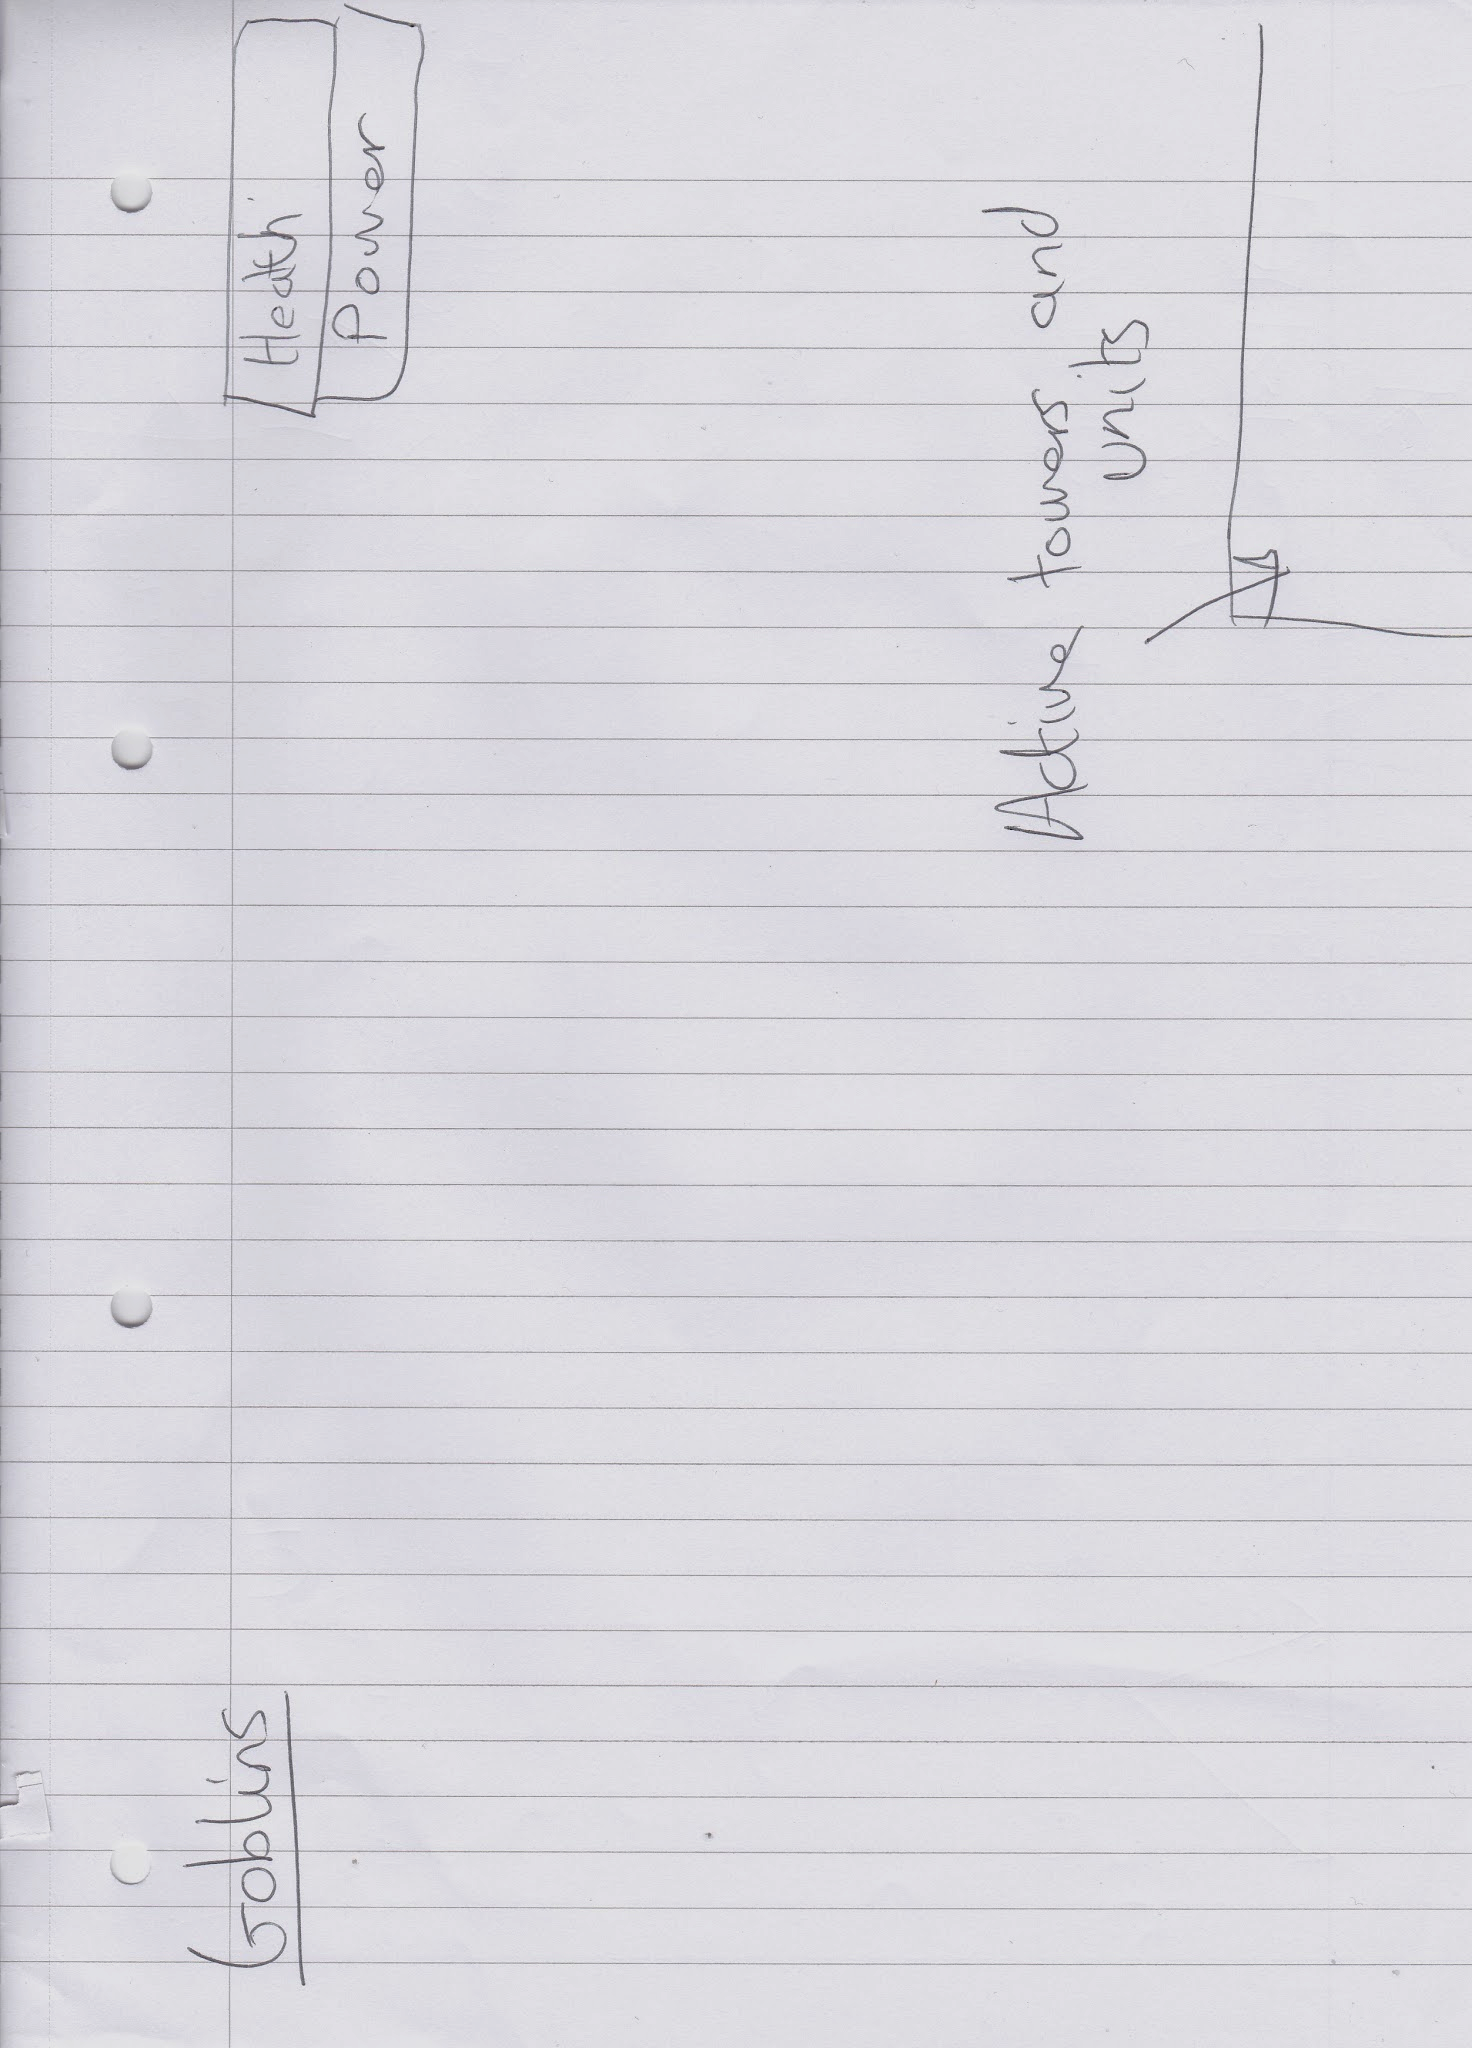 Goblins
Health
Power
Active towers and
units